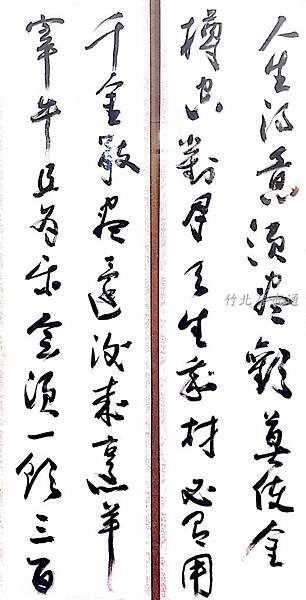 人生得意須盡歡莫使金
樽空對月天生我材必有用
千金散盡還復來烹羊
宰牛且為樂會須一飲三百
竹北 通